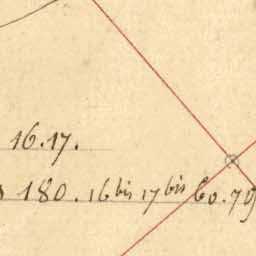 16.17.
180. 16bis 17bis 60. 79